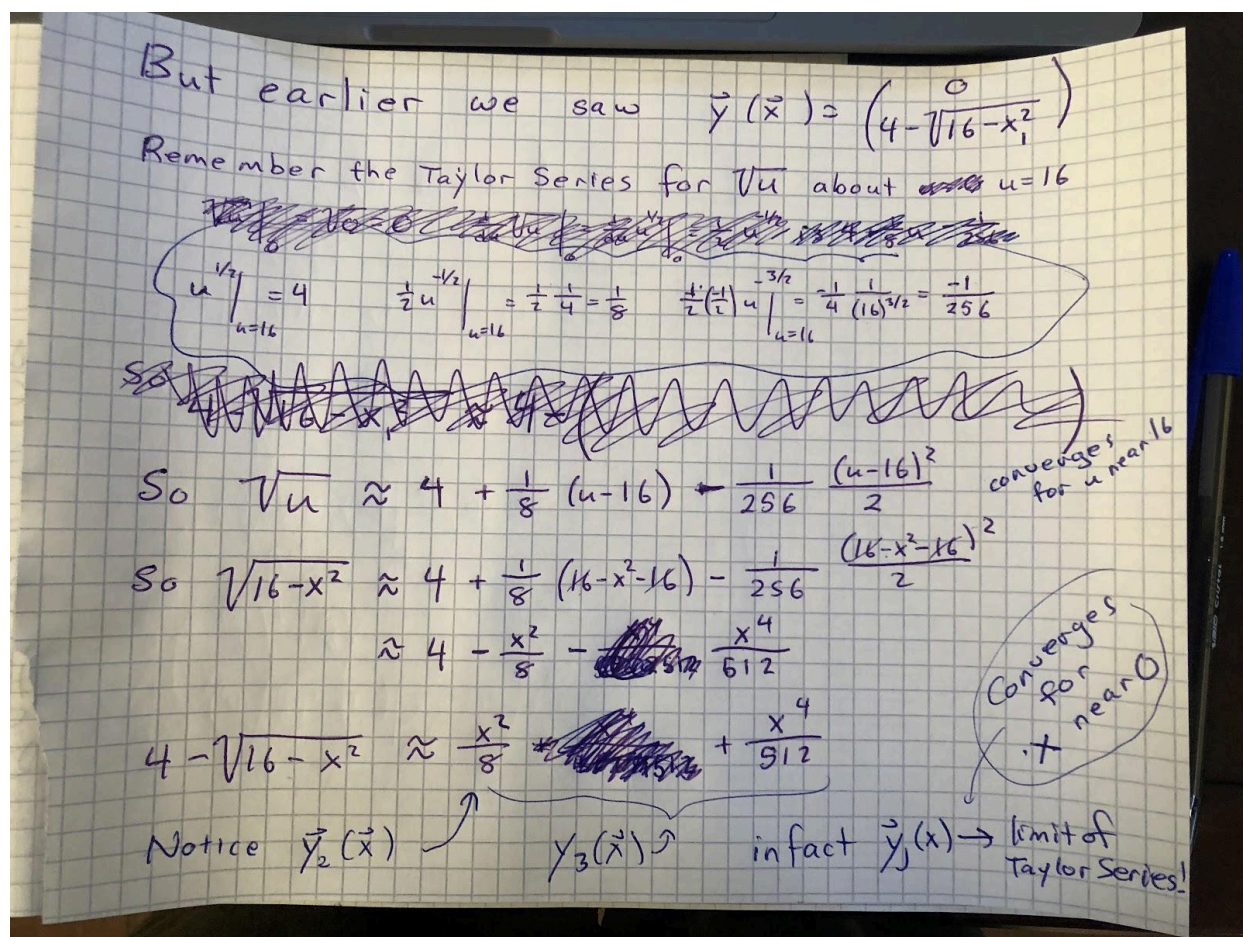 But earlier we saw y⃗(x⃗) = (0 / 4-√(16-x₁²))
Remember the Taylor Series for √u about u=16
u^(1/2)|_(u=16) = 4   1/2 u^(-1/2)|_(u=16) = 1/2 1/4 = 1/8   1/2(-1/2) u^(-3/2)|_(u=16) = -1/4 1/(16)^(3/2) = -1/256
So
So √u ≈ 4 + 1/8 (u-16) - 1/256 (u-16)²/2
converges
for u near 16
So √(16-x²) ≈ 4 + 1/8 (16-x²-16) - 1/256 (16-x²-16)²/2
≈ 4 - x²/8 - x⁴/512
4-√(16-x²) ≈ x²/8 + x⁴/512
Converges
for
near 0
Notice y⃗₂(x⃗)   y₃(x⃗)   in fact y⃗ⱼ(x) → limit of
Taylor Series!